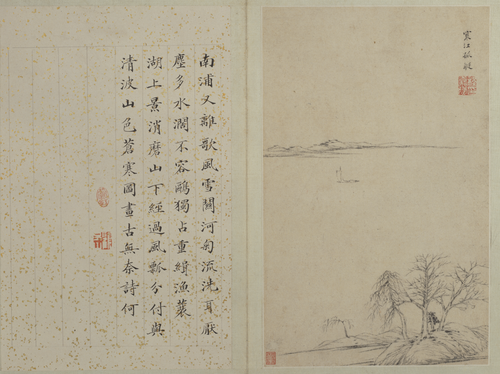 南浦又離歌風雪關河匊流洗耳厭
塵多水濶不容鷗獨占重緝漁蓑
湖上景消磨山下經過風瓢分付與
清波山色蒼寒圖畫古無奈詩何
寒江孤艇